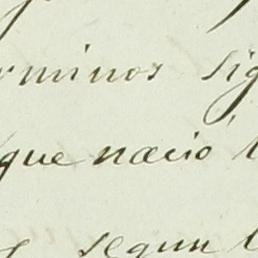 rminos sig
que nacio
segun